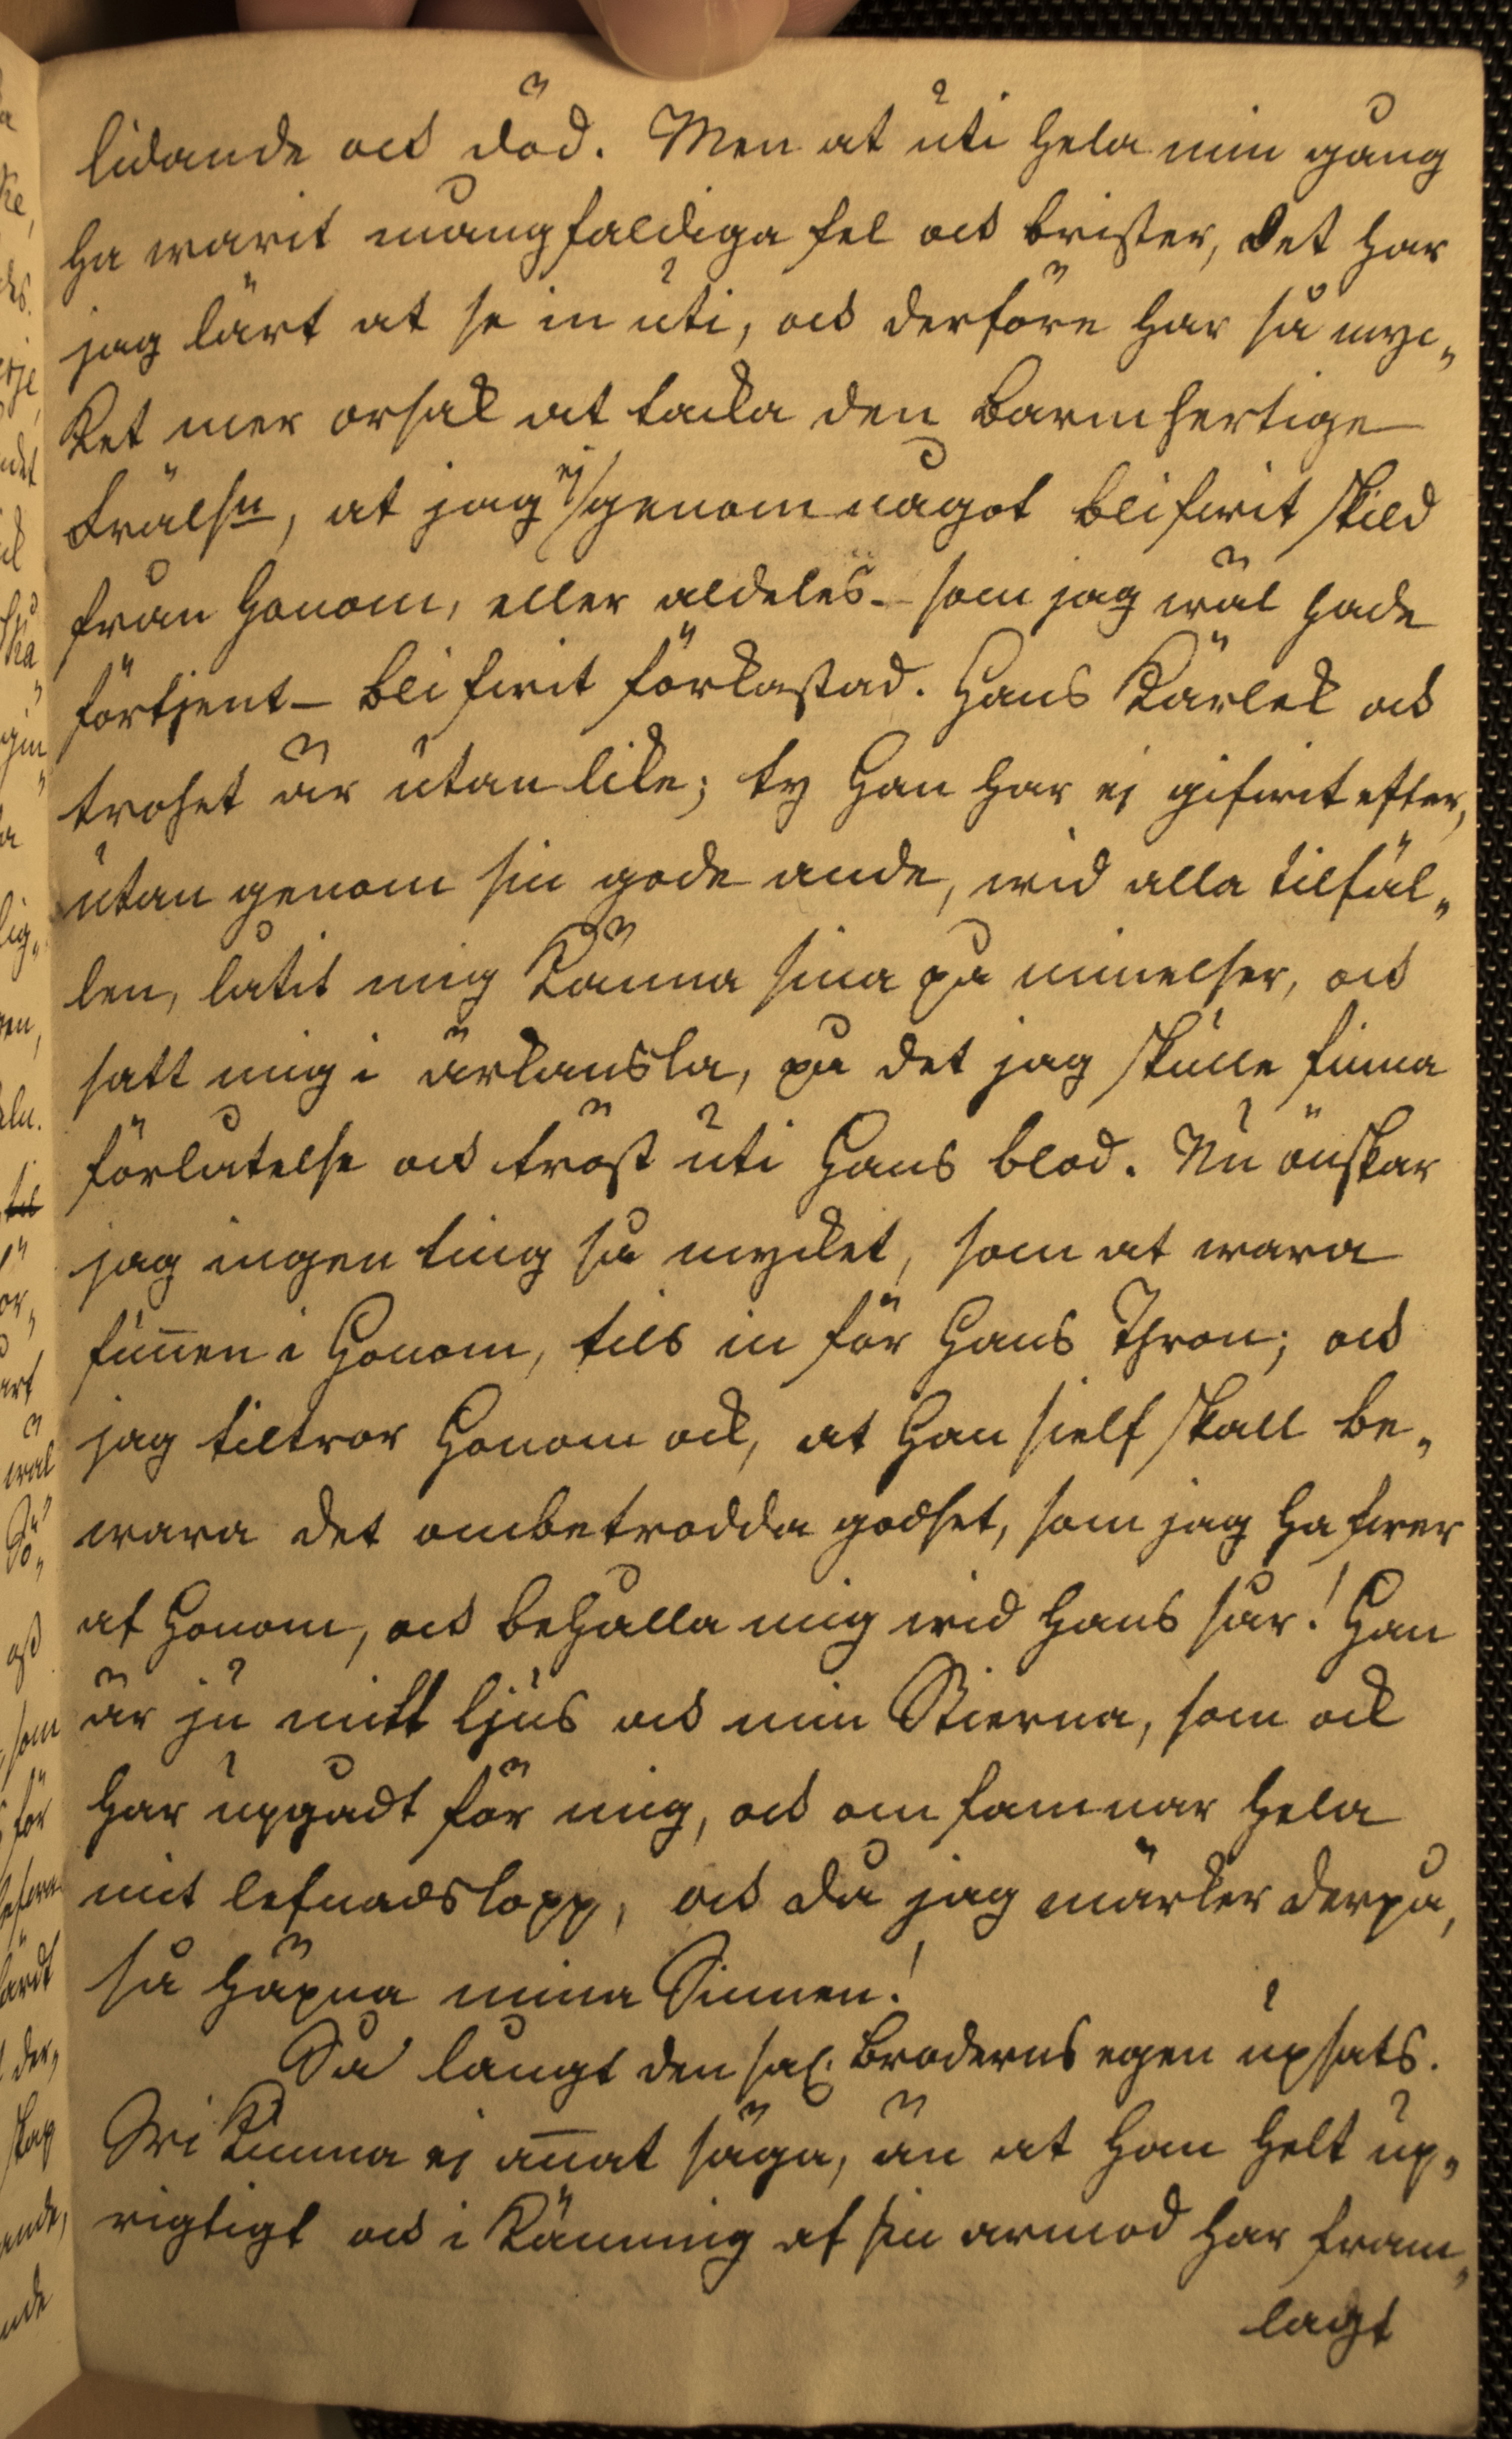 lidande ock död. Men at uti hela min gång
ha warit mångfaldiga fel ock brister, det har
jag lärt at se in uti, ock derföre har så myc„
ket mer orsak at tacka den barmhertige
Frälsn, at jag ej genom något blifwit skild
från Honom, eller aldeles – som jag wäl hade
förtjent – blifwit förkastad. Hans Kärlek ock
trohet är utan like; ty Han har ej gifwit efter,
utan genom sin gode ande, wid alla tilfäl„
len, låtit mig känna sina på minelser, ock
satt mig i ärkänsla, på det jag skulle finna
förlåtelse ock tröst uti Hans blod. Nu önskar
jag ingen ting så mycket, som at wara
fun̄en i Honom, tils in för Hans Thron; ock
jag tiltror Honom ock, at Han sielf skall be„
wara det ombetrodda godset, som jag hafwer
af Honom, ock behålla mig wid Hans sår! Han
är ju mitt ljus ock min Stierna, som ock
har upgådt för mig, ock om famnar hela
mit lefnadslopp, ock då jag märker derpå,
så häpna mina Sinnen!
Så långt den sal. Broderns egen upsats.
Wi kunna ej an̄at säga, än at han helt up„
rigtigt ock i känning af sin armod har fram„
lagt